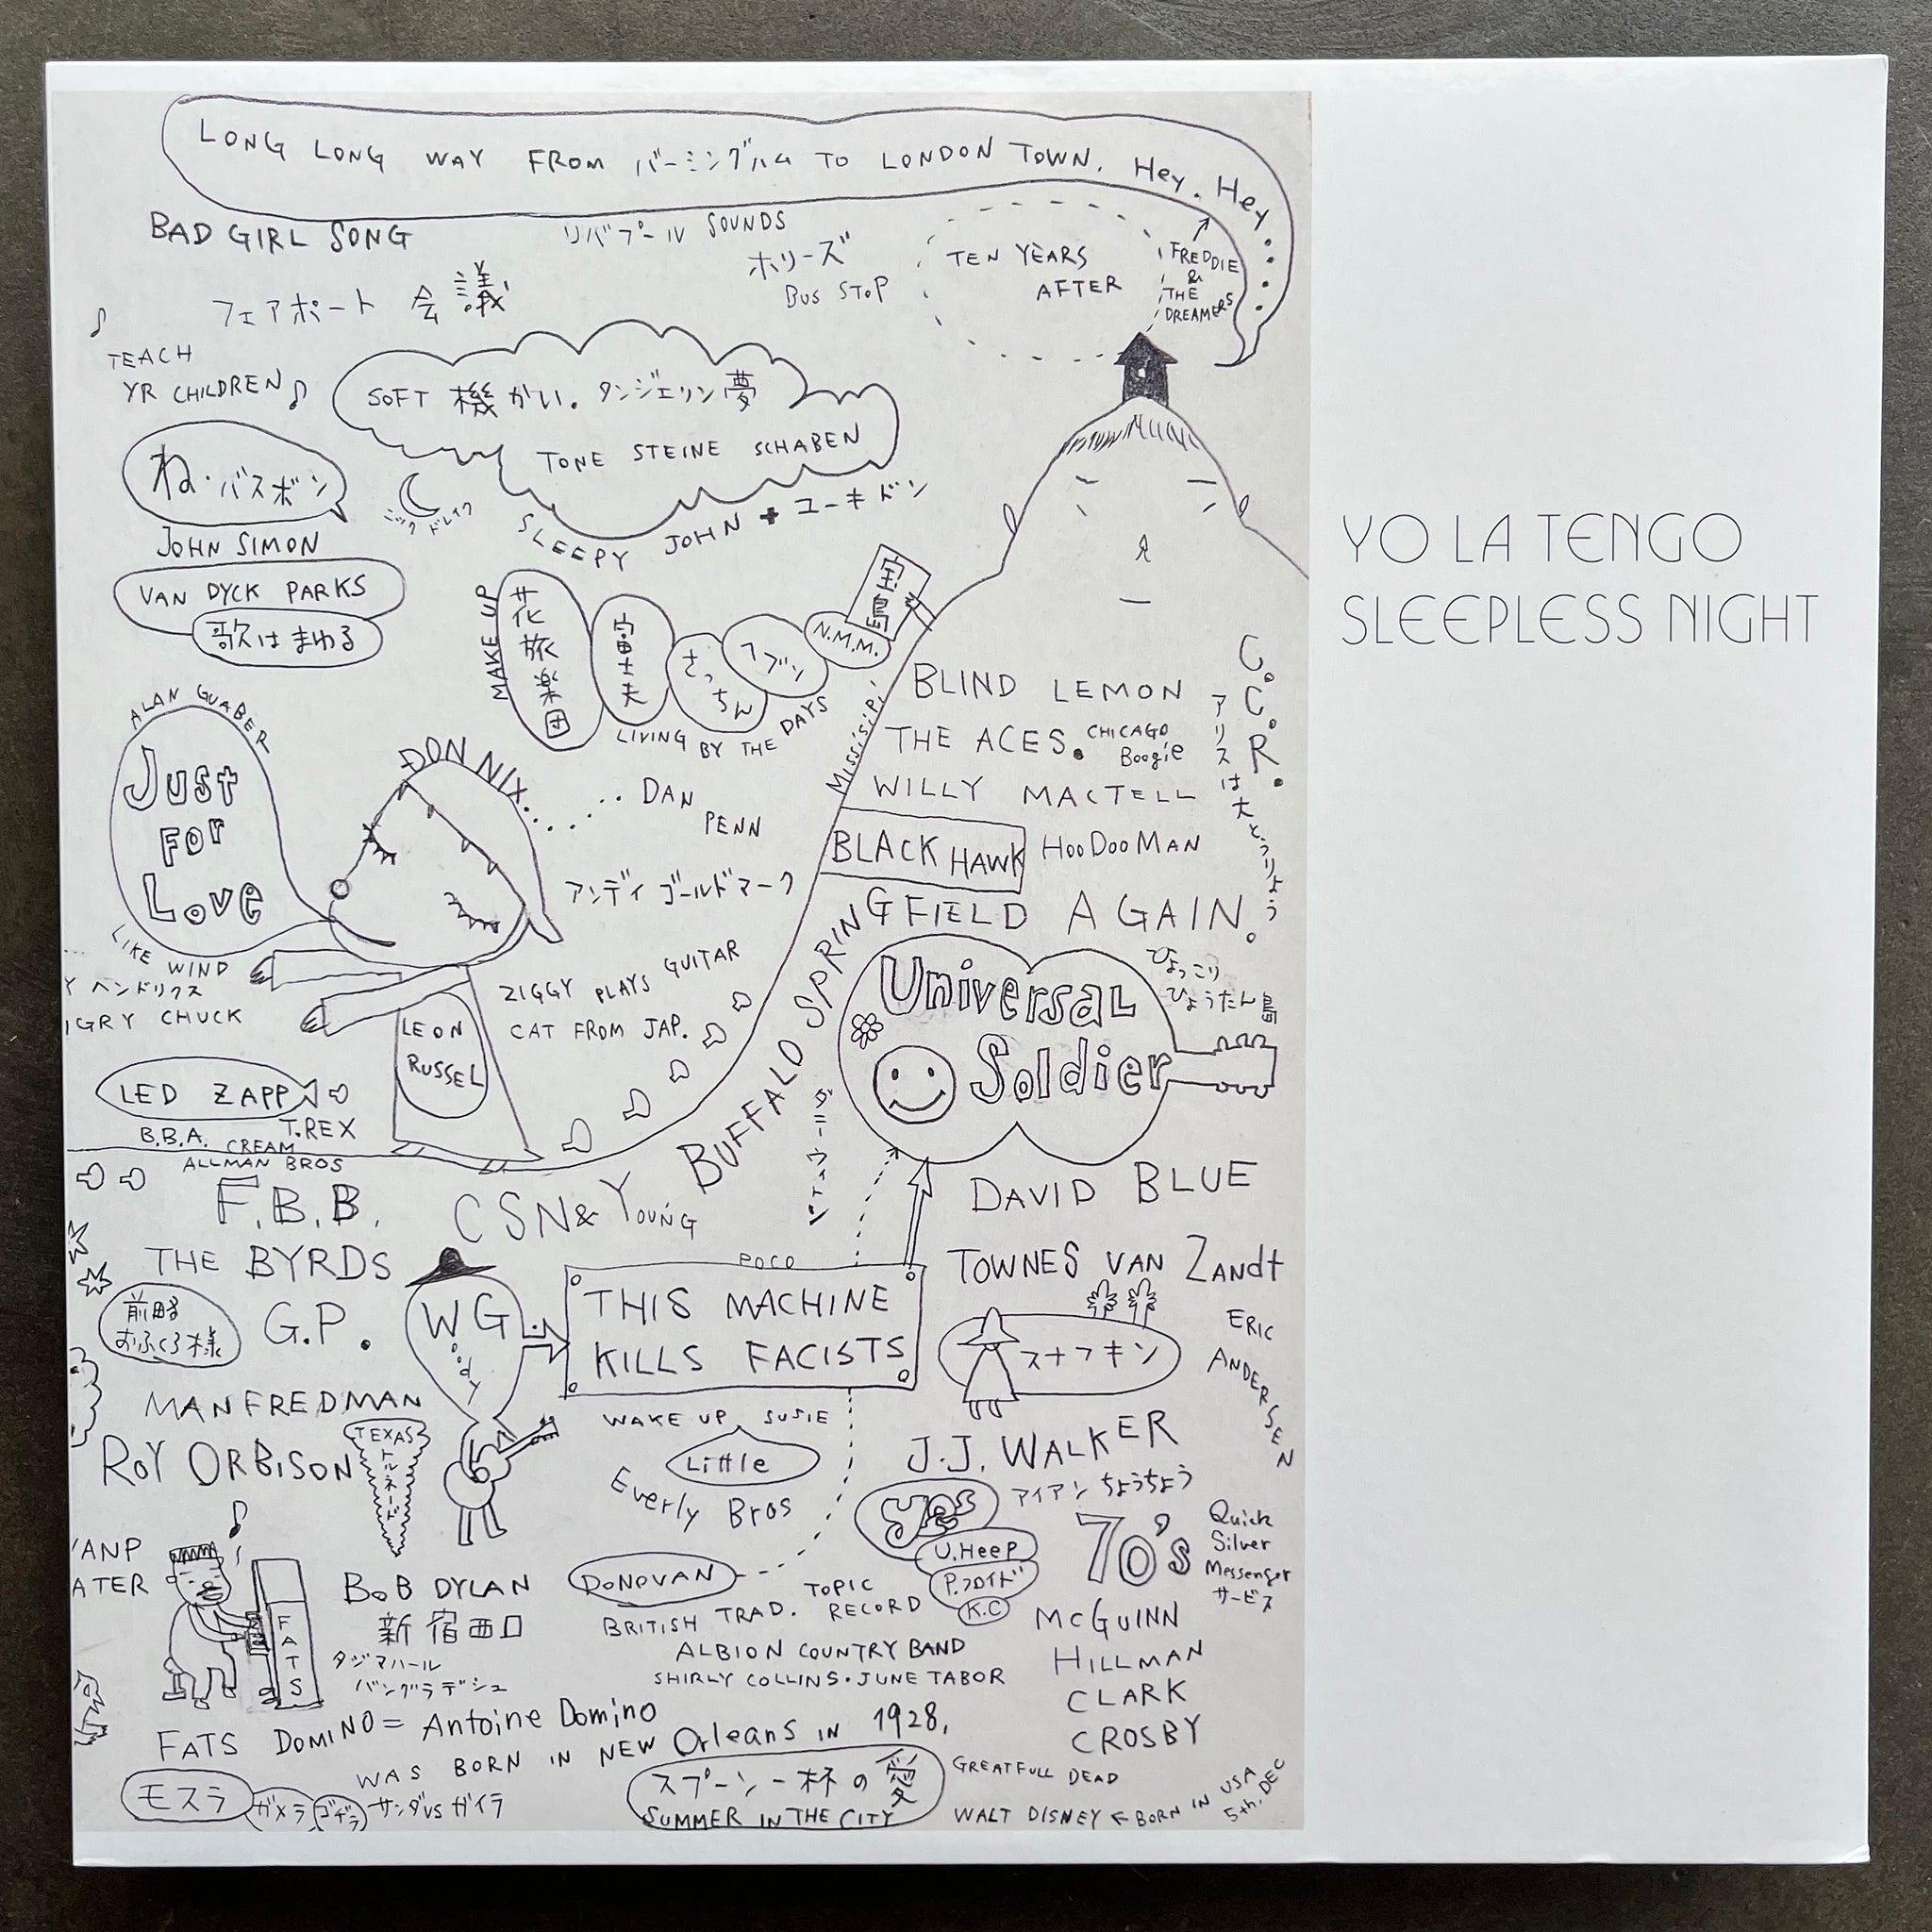 LONG LONG WAY FROM バーミングハム TO LONDON TOWN. Hey. Hey
BAD GIRL SONG
リバプール SOUNDS
ホリーズ
BUS STOP
TEN YEARS
AFTER
FREDDIE
&
THE
DREAMERS
フェアポート 会議
TEACH
YR CHILDREN
SOFT 機かい. タンジェリン夢
TONE STEINE SCHABEN
ね・バスボン
JOHN SIMON
VAN DYCK PARKS
歌はまわる
SLEEPY JOHN + ユーキドン
YO LA TENGO
SLEEPLESS NIGHT
MAKE UP
花旅楽団
富士夫
さっちん
N.M.M.
宝島
LIVING BY THE DAYS
MISSISIPI
BLIND LEMON
THE ACES. CHICAGO
Boogie
WILLY MACTELL
BLACK HAWK
HooDooMAN
C.C.R.
アリスは大とうりょう
ALAN GUABER
Just
For
Love
LIKE WIND
DON NIX......
DAN
PENN
アンディ ゴールドマーク
Y ヘンドリクス
IGRY CHUCK
ZIGGY PLAYS GUITAR
CAT FROM JAP.
LEON
RUSSEL
LED ZAPP
T.REX
B.B.A. CREAM
ALLMAN BROS
BUFFALO SPRINGFIELD AGAIN.
Universal
Soldier
ひょっこり
ひょうたん島
F.B.B.
CSN& YOUNG
DAVID BLUE
THE BYRDS
POCO
TOWNES VAN Zandt
前略
おふくろ様
G.P.
WG
oody
THIS MACHINE
KILLS FACISTS
スナフキン
ERIC
ANDERSEN
MANFREDMAN
ROY ORBISON
TEXAS
トルネード
WAKE UP SUSIE
Little
Everly Bros
J.J. WALKER
アイアン ちょうちょう
yes
U.HeeP
P.フロイド
K.C
70's
Quick
Silver
Messenger
サービス
'ANP
ATER
FATS
BoB DYLAN
新宿西口
タジマハール
バングラデシュ
DONOVAN
TOPIC
RECORD
BRITISH TRAD.
ALBION COUNTRY BAND
SHIRLY COLLINS・JUNE TABOR
MCGUINN
HILLMAN
CLARK
CROSBY
FATS DOMINO = Antoine Domino
WAS BORN IN NEW Orleans IN 1928,
モスラ
ガメラ
ゴジラ
サンダVSガイラ
スプーン一杯の愛
SUMMER IN THE CITY
GREATFULL DEAD
WALT DISNEY ← BORN IN USA
5th. DEC